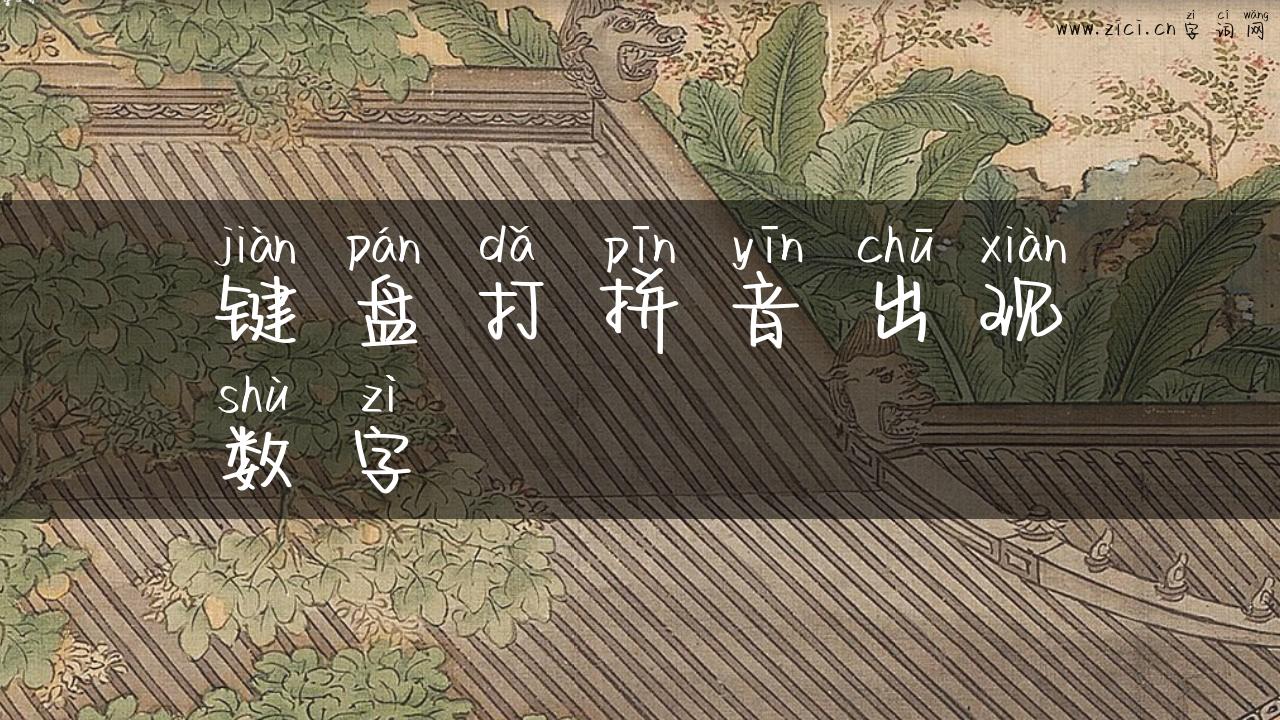 zì cí wǎng
www.zici.cn 字词网
jiàn pán dǎ pīn yīn chū xiàn
键盘打拼音出现
shù zì
数字